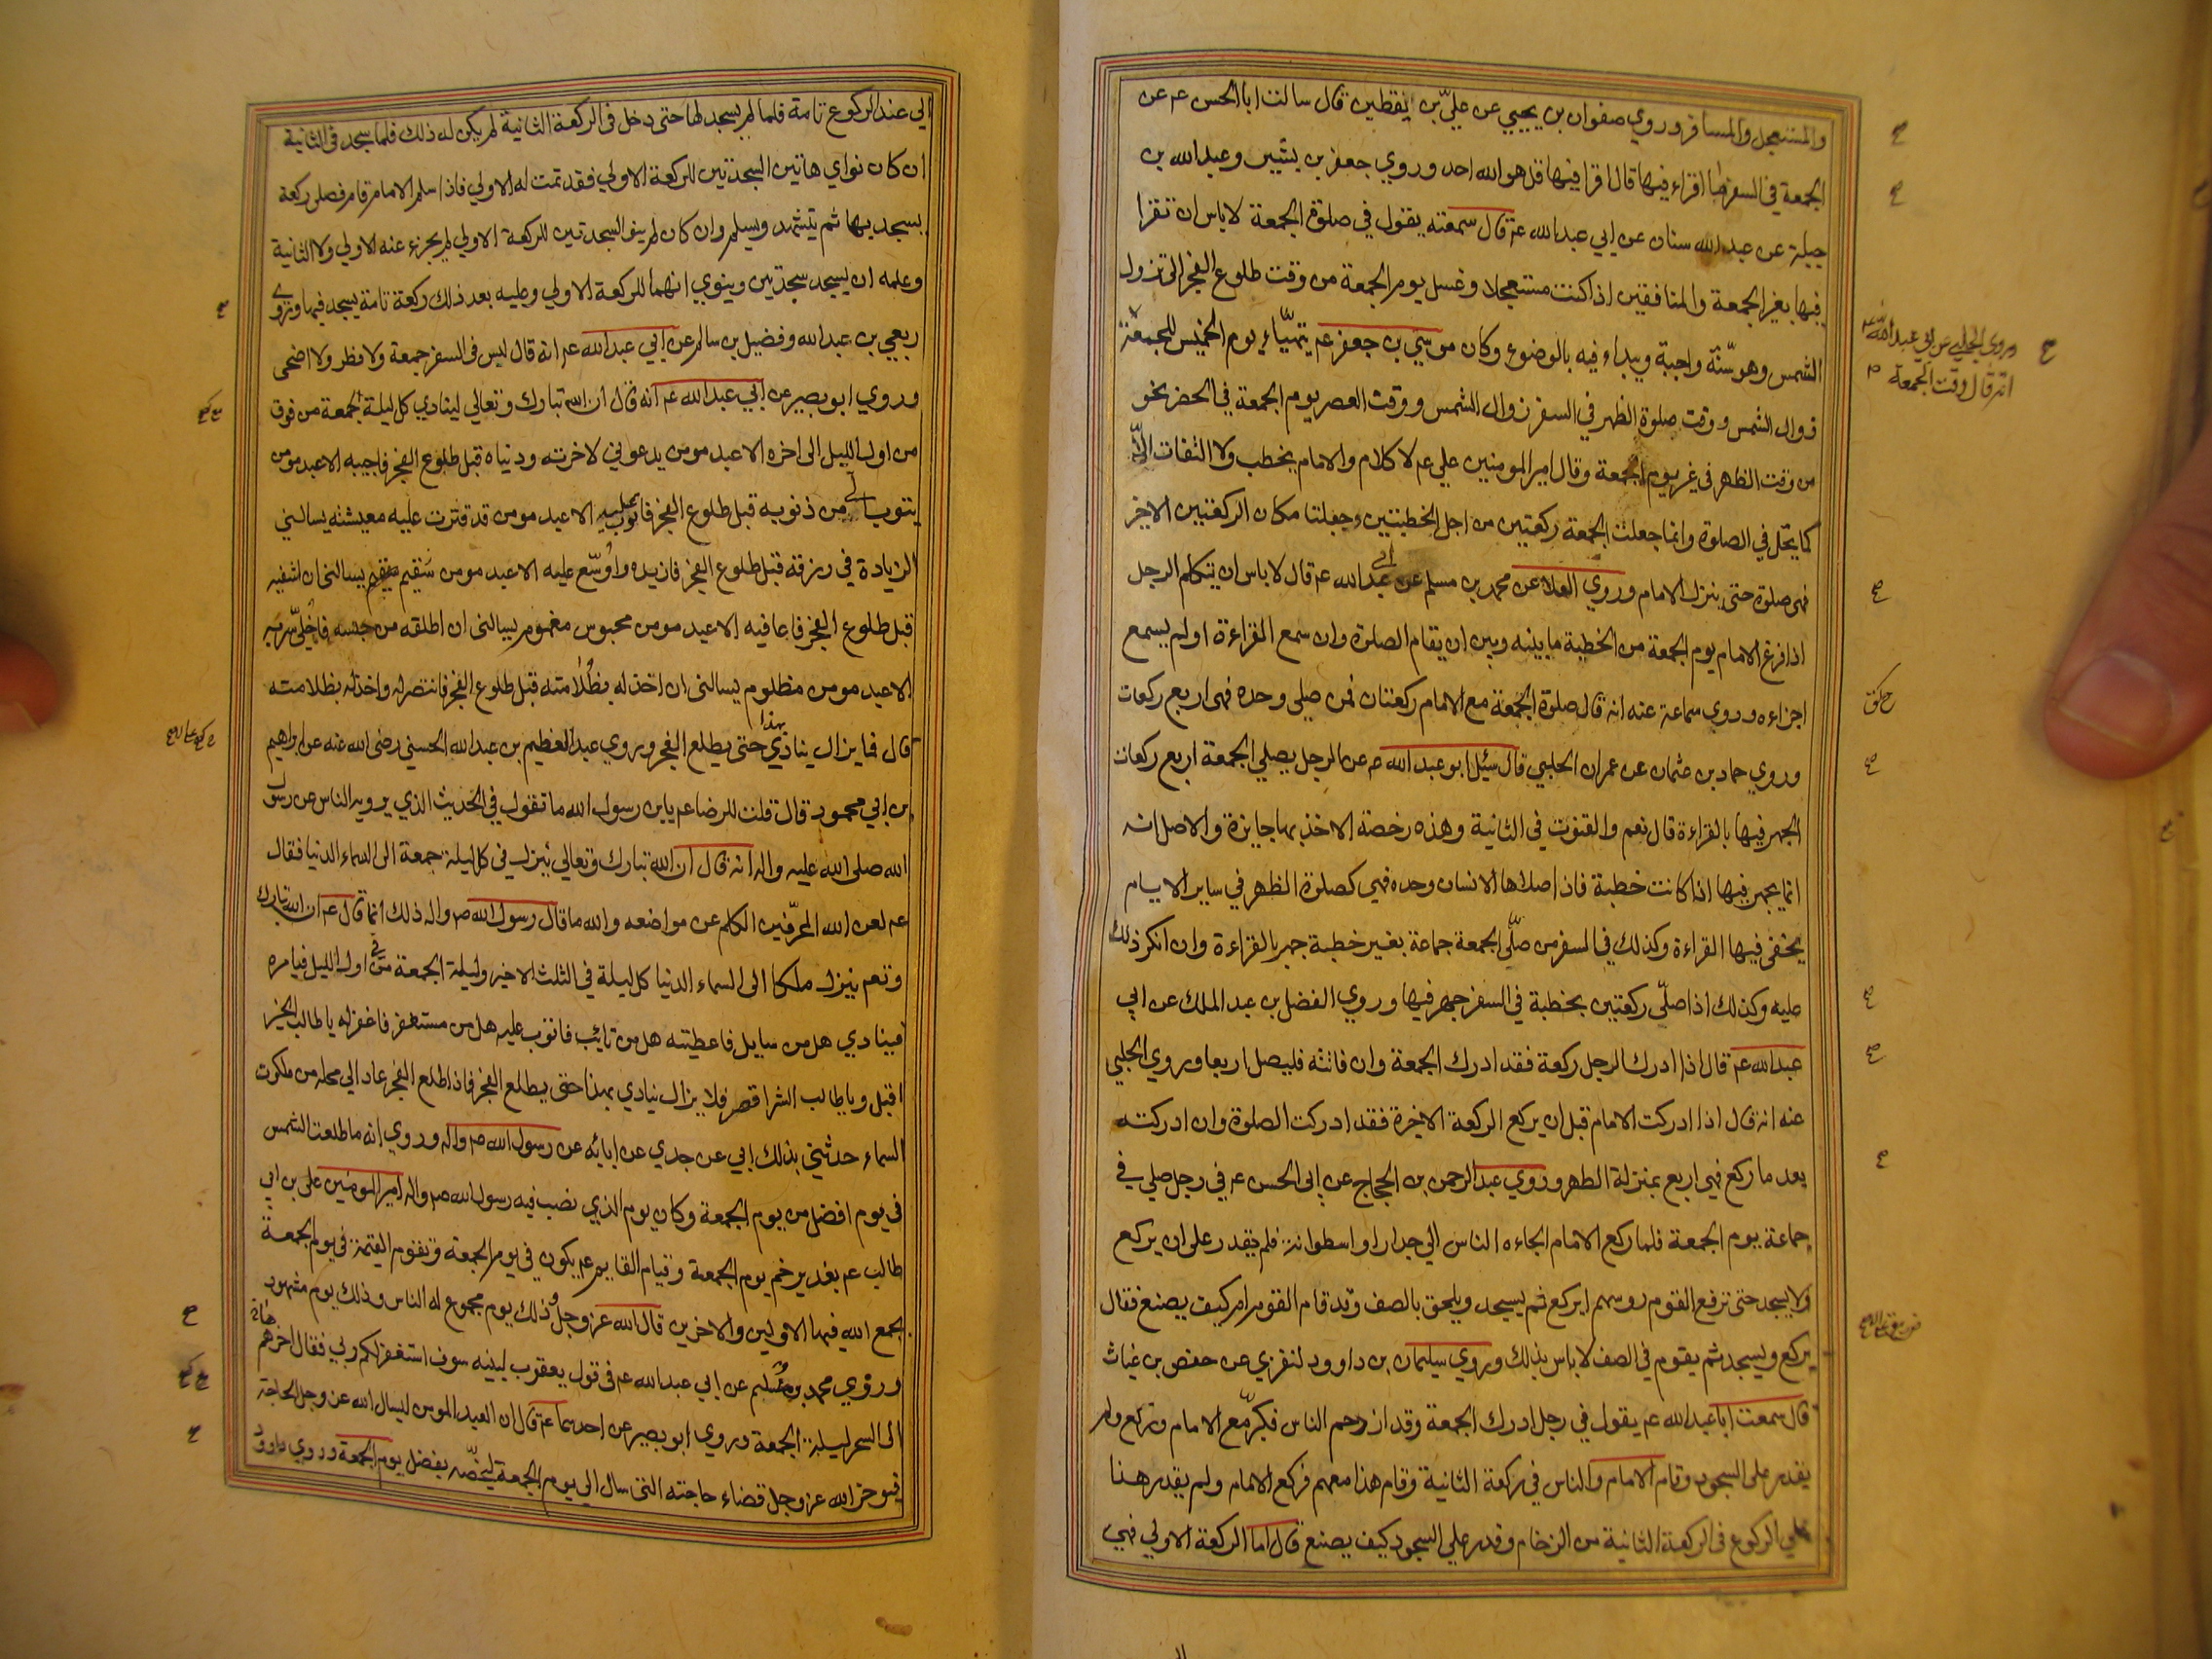 والمستعجل والمسافر وروي صفوان بن يحيي عن عليّ بن يقطين قال سالت ابا الحسن عم عن
الجمعة في السفر ما اقراء فيها قال اقرا فيها قل هو الله احد وروي جعفر بن بشير وعبد الله بن
جبلة عن عبد الله سنان عن ابي عبد الله عم قال سمعته يقول في صلوة الجمعة لا باس ان تقرا
فيها بغير الجمعة والمنافقين اذا كنت مستعجلا وغسل يوم الجمعة من وقت طلوع الفجر الى تزول
الشمس وهو سّنّة واجبة ويبداء فيه بالوضوء وكان موسي بن جعفر عم يتهيّاء يوم الخميس للجمعة
وروي الحلبي عن ابي عبد الله
انه قال وقت الجمعة
زوال الشمس ووقت صلوة الظهر في السفر زوال الشمس ووقت العصر يوم الجمعة في الحضر نحو
من وقت الظهر في غير يوم الجمعة وقال امير المومنين علي عم لا كلام والامام يخطب ولا التفات الّا
كما يحّل في الصلوة وانما جعلت الجمعة ركعتين من اجل الخطبتين وجعلتا مكان الركعتين الاخر
فهى صلوة حتى ينزل الامام وروي العلا عن محمد بن مسلم عن ابي عبد الله عم قال لا باس ان يتكلم الرجل
اذا فرغ الامام يوم الجمعة من الخطبة ما بينه وبين ان يقام الصلوة وان سمع القراءة او لم يسمع
اجزاءه وروي سماعة عنه انه قال صلوة الجمعة مع الامام ركعتان فمن صلى وحده فهى اربع ركعات
وروي حماد بن عثمان عن عمران الحلبي قال سئل ابو عبد الله عم عن الرجل يصلي الجمعة اربع ركعات
الجهر فيها بالقراءة قال نعم والقنوت في الثانية وهذه رخصة الاخذ بها جايزة والاصل انه
انما يجهر فيها اذا كانت خطبة فاذا صلاها الانسان وحده فهي كصلوة الظهر في ساير الايام
يخفى فيها القراءة وكذلك في السفر من صلّى الجمعة جماعة بغير خطبة جهر بالقراءة وان انكر ذلك
عليه وكذلك اذا صلّى ركعتين بخطبة في السفر جهر فيها وروي الفضل بن عبد الملك عن ابي
عبد الله عم قال اذا ادرك الرجل ركعة فقد ادرك الجمعة وان فاتته فليصل اربعا وروي الحلبي
عنه انه قال اذا ادركت الامام قبل ان يركع الركعة الاخيرة فقد ادركت الصلوة وان ادركته
بعد ما ركع فهى اربع بمنزلة الظهر وروي عبد الرحمن بن الحجاج عن ابى الحسن عم في رجل صلي في
جماعة يوم الجمعة فلما ركع الامام الجاءه الناس الي جدار او اسطوانة فلم يقدر على ان يركع
ولا يسجد حتى ترفع القوم روسهم ايركع ثم يسجد ويلحق بالصف وقد قام القوم ام كيف يصنع فقال
يركع ويسجد ثم يقوم في الصف لا باس بذلك وروي سليمان بن داوود المنقري عن حفص بن غياث
قال سمعت ابا عبد الله عم يقول في رجل ادرك الجمعة وقد ازدحم الناس فكبّر مع الامام وركع ولم
يقدر على السجود وقام الامام والناس في ركعة الثانية وقام هذا معهم فركع الامام ولم يقدر هنا
علي الركوع في الركعة الثانية من الزحام وقدر علي السجود كيف يصنع قال اما الركعة الاولي فهي
الي عند الركوع تامة فلما لم يسجد لها حتى دخل في الركعة الثانية لم يكن له ذلك فلما سجد في الثانية
ان كان نواي هاتين السجدتين للركعة الاولي فقد تمت له الاولي فاذا سلم الامام قام فصلى ركعة
يسجد بها ثم يتشهد ويسلم وان كان لم ينو السجدتين للركعة الاولي لم يجزء عنه الاولي ولا الثانية
وعليه ان يسجد سجدتين وينوي انهما للركعة الاولي وعليه بعد ذلك ركعة تامة يسجد فيها وروي
ربعي بن عبد الله وفضيل بن سالم عن ابي عبد الله عم انه قال ليس في السفر جمعة ولا فطر ولا اضحى
وروي ابو بصير عن ابي عبد الله عم انه قال ان الله تبارك وتعالي لينادي كل ليلة الجمعة من فوق
من اول الليل الى اخره الا عبد مومن يدعوني لاخرته ودنياه قبل طلوع الفجر فاجيبه الا عبد مومن
يتوب الي من ذنوبه قبل طلوع الفجر فاتوب عليه الا عبد مومن قد قترت عليه معيشته يسالني
الزيادة في رزقه قبل طلوع الفجر فازيده واوسّع عليه الا عبد مومن سقيم يسالنى ان اشفيه
قبل طلوع الفجر فاعافيه الا عبد مومن محبوس مغموم يسالنى ان اطلقه من حبسه فاخلّي سربه
الا عبد مومن مظلوم يسالنى ان اخذ له بظلامته قبل طلوع الفجر فانتصر له واخذ له بظلامته
قال فما يزال ينادي بهذا حتى يطلع الفجر وروي عبد العظيم بن عبد الله الحسني رضى الله عنه عن ابراهيم
بن ابي محمود قال قلت للرضا عم يابن رسول الله ما تقول في الحديث الذي يرويه الناس عن رسول
الله صلى الله عليه واله انه قال ان الله تبارك وتعالي ينزل في كل ليلة جمعة الى السماء الدنيا فقال
عم لعن الله المحرّفين الكلم عن مواضعه والله ما قال رسول الله ص واله ذلك انما قال عم ان الله تبارك
وتعم ينزل ملكا الى السماء الدنيا كل ليلة في الثلث الاخير وليلة الجمعة من اول الليل فيامره
فينادي هل من سايل فاعطيته هل من تائب فاتوب عليه هل من مستغفر فاغفر له يا طالب الخير
اقبل ويا طالب الشر اقصر فلا يزال ينادي بهذا حتى يطلع الفجر فاذا طلع الفجر عاد الي محله من ملكوت
السماء حدثني بذلك ابي عن جدي عن ابائه عن رسول الله ص واله وروي انه ما طلعت الشمس
في يوم افضل من يوم الجمعة وكان يوم الذي نصب فيه رسول الله ص واله امير المومنين على بن ابي
طالب عم بغدير خم يوم الجمعة وقيام القايم عم يكون في يوم الجمعة وتقوم القيمة في يوم الجمعة
يجمع الله فيها الاولين والاخرين قال الله عز وجل وذلك يوم مجموع له الناس وذلك يوم مشهود
وروي محمد بن مسلم عن ابي عبد الله عم في قول يعقوب لبنيه سوف استغفر لكم ربي فقال اخرهم
الى السحر ليلة الجمعة وروي ابو بصير عن احدهما عم قال ان العبد المومن ليسال الله عز وجل الحاجة
فيوخر الله عز وجل قضاء حاجته التى سال الي يوم الجمعة ليخصّه بفضل يوم الجمعة وروي داوود